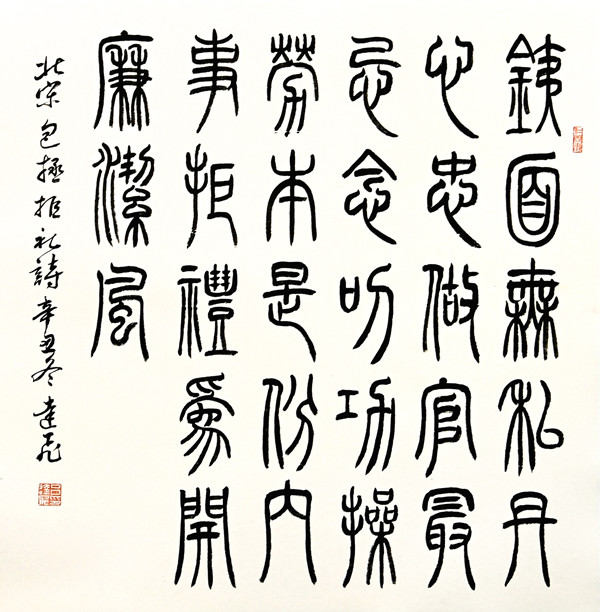 銕面無私丹
心忠做官最
忌念叨功操
勞本是份內
事拒禮爲開
廉潔風
北宋包拯拒礼詩辛丑冬達飛